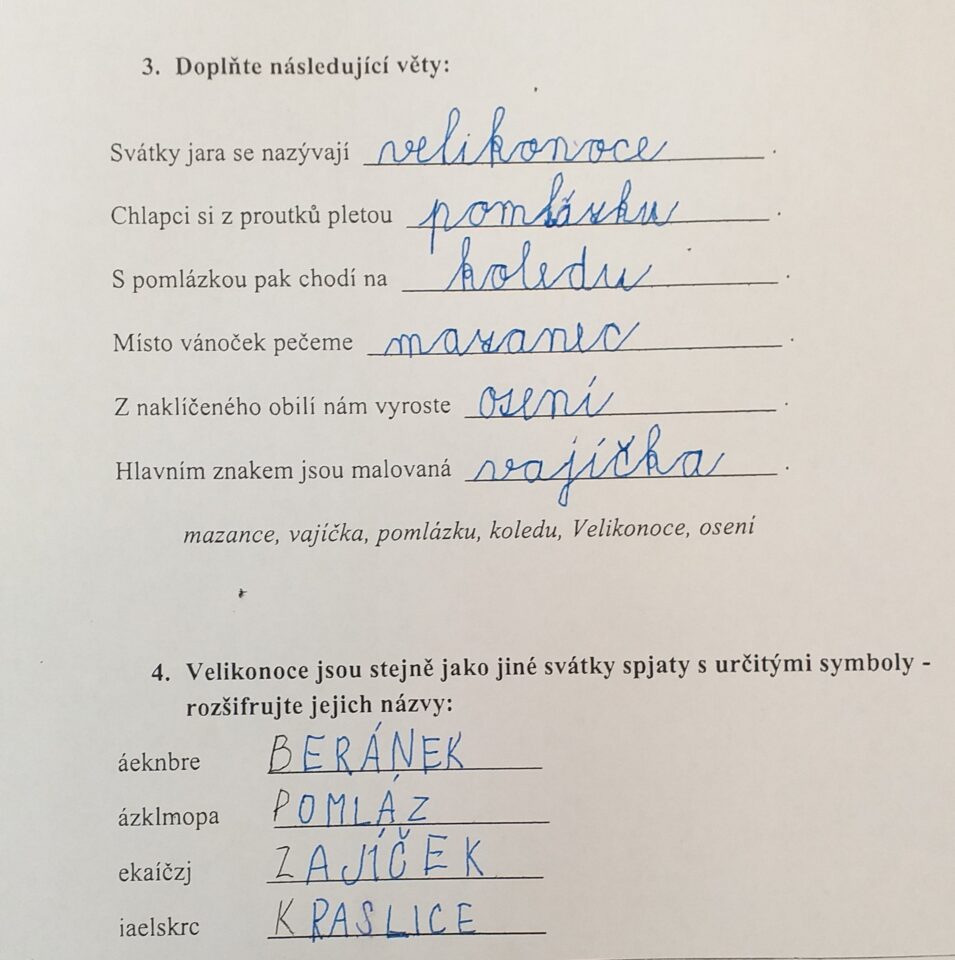 3. Doplňte následující věty:
Svátky jara se nazývají velikonoce.
Chlapci si z proutků pletou pomlázku.
S pomlázkou pak chodí na koledu.
Místo vánoček pečeme mazanec.
Z naklíčeného obilí nám vyroste osení.
Hlavním znakem jsou malovaná vajíčka.
mazance, vajíčka, pomlázku, koledu, Velikonoce, osení
4. Velikonoce jsou stejně jako jiné svátky spjaty s určitými symboly -
rozšifrujte jejich názvy:
áeknbre BERÁNEK
ázklmopa POMLÁZ
ekaíčzj ZAJÍČEK
iaelskrc KRASLICE